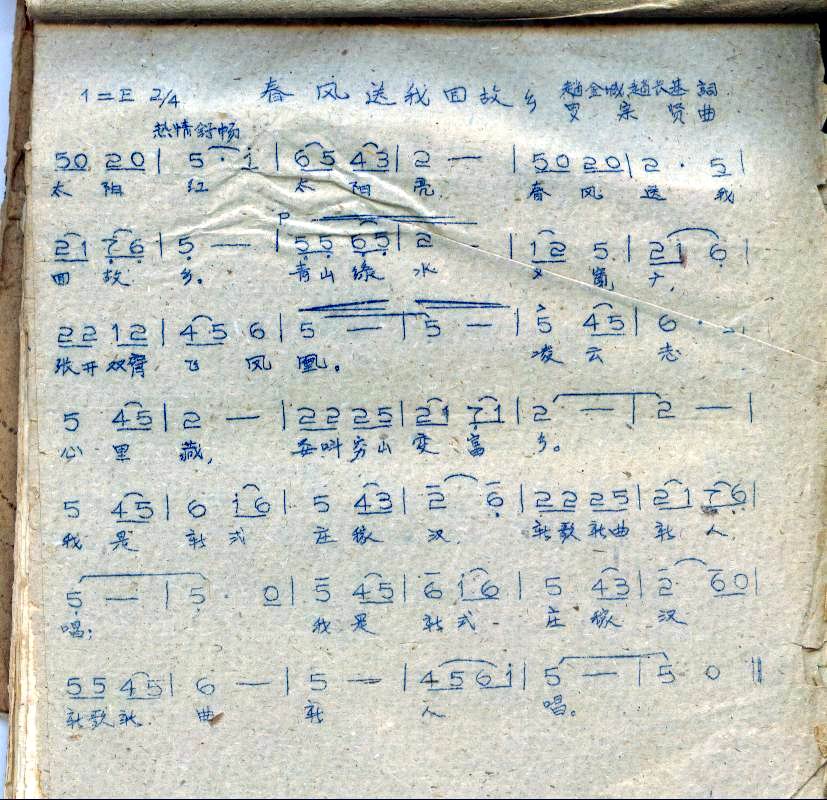 1=E 2/4 春风送我回故乡 趙金城 趙长基 詞
宗贤 曲
热情舒畅
50 20 | 5 · i | 65 43 | 2 — | 50 20 | 2 · 5 |
太 阳 红 太 阳 亮 春 风 送 我
P
21 76 | 5 — | 55 65 | 2 — | 12 5 | 21 6 |
回 故 乡。 青山绿 水
22 12 | 45 6 | 5 — | 5 — | 5 45 | 6 ·
张开双臂 飞 凤 凰。 凌 云 志
5 45 | 2 — | 22 25 | 21 71 | 2 — | 2 — |
心 里 藏, 要叫穷山 变 富 乡。
5 45 | 6 i6 | 5 43 | 2 6 | 22 25 | 21 76 |
我 是 新 式 庄 稼 汉, 新歌新曲 新 人
5 — | 5 · 0 | 5 45 | 6 i6 | 5 43 | 2 60 |
唱; 我 是 新 式 庄 稼 汉
55 45 | 6 — | 5 — | 4561 | 5 — | 5 0 ‖
新歌新 曲 新 人 唱。